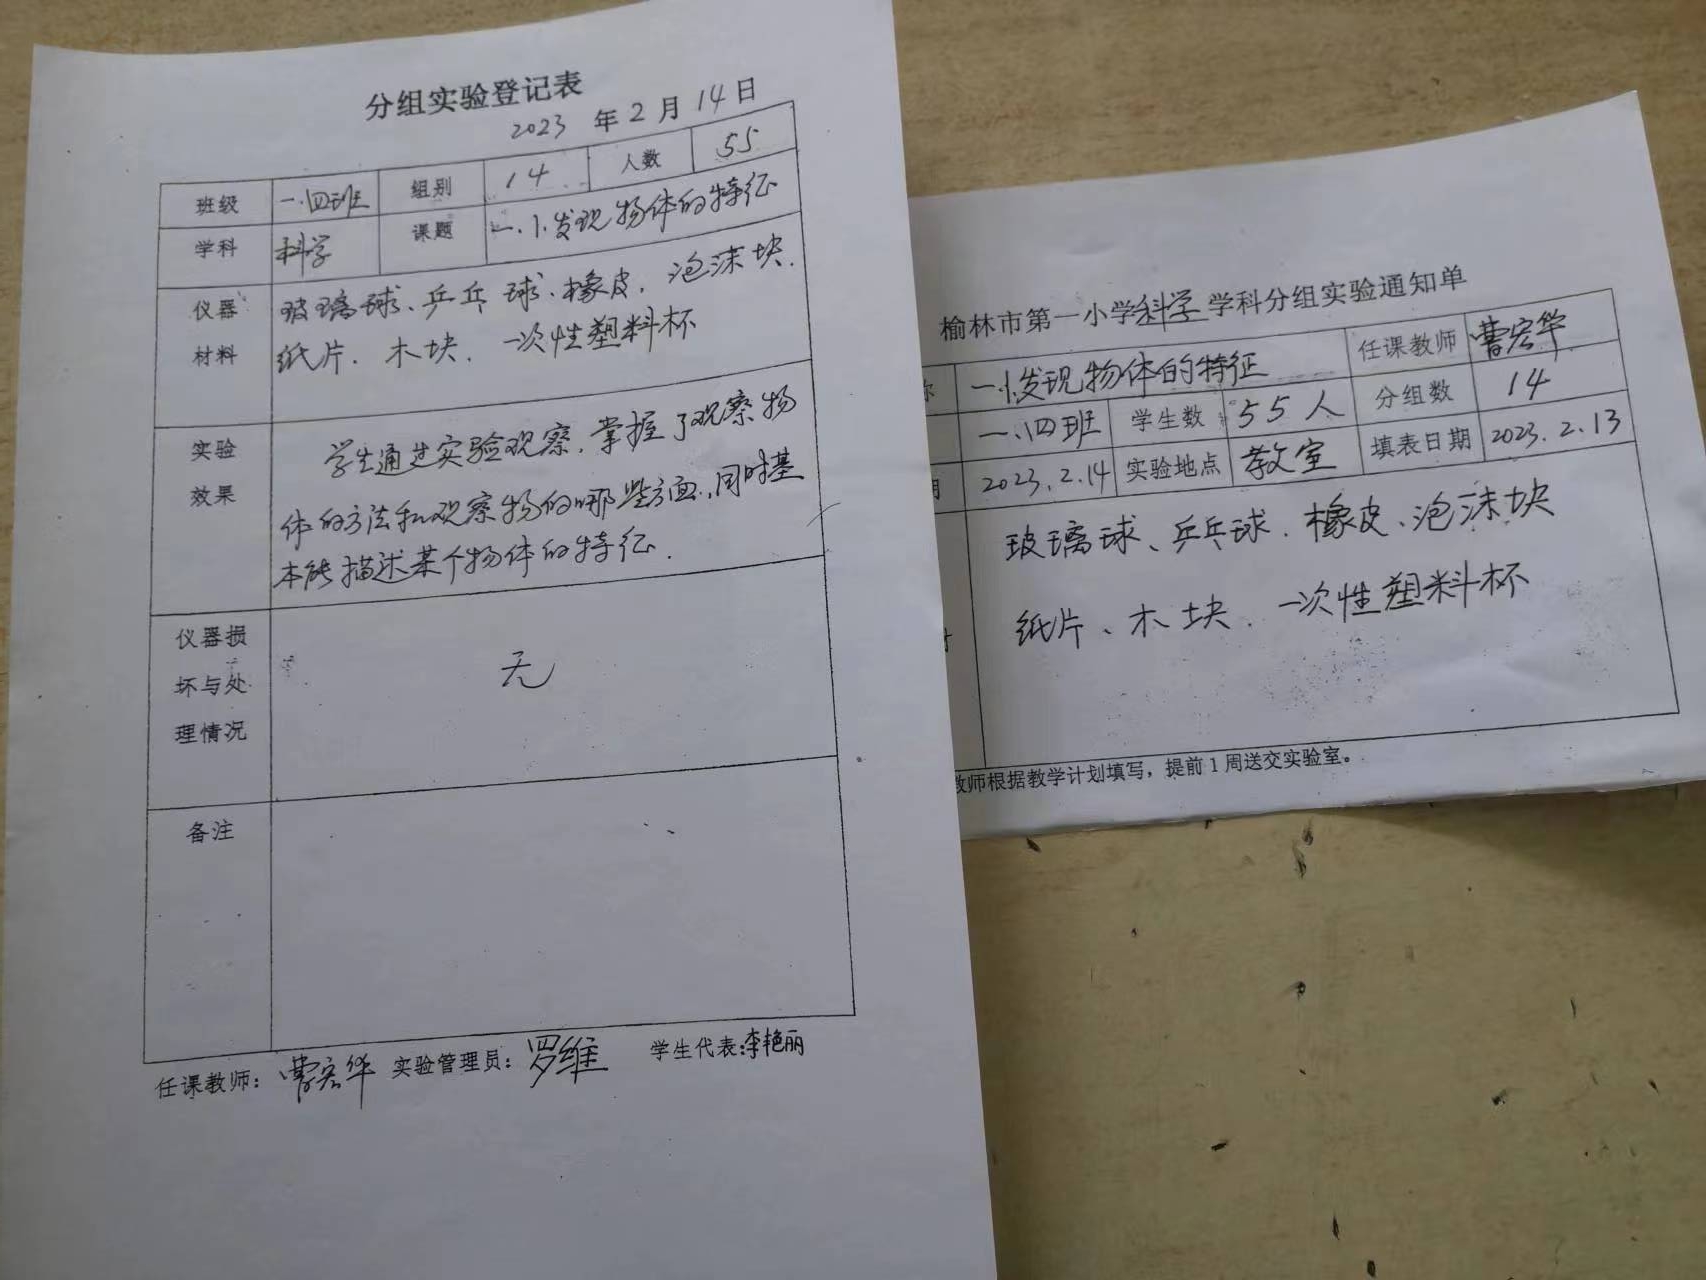 分组实验登记表
2023 年 2 月 14 日
班级 一.四班 组别 14 人数 55
学科 科学 课题 一.1.发现物体的特征
仪器 玻璃球、乒乓球、橡皮、泡沫块、
材料 纸片、木块、一次性塑料杯
实验 学生通过实验观察，掌握了观察物
效果 体的方法和观察物的哪些方面，同时基
本能描述某个物体的特征.
仪器损
坏与处 无
理情况
备注
任课教师： 曹宏华 实验管理员： 罗维 学生代表：李艳丽
榆林市第一小学科学学科分组实验通知单
一.1.发现物体的特征 任课教师 曹宏华
一.四班 学生数 55人 分组数 14
2023.2.14 实验地点 教室 填表日期 2023.2.13
玻璃球、乒乓球、橡皮、泡沫块
纸片、木块、一次性塑料杯
教师根据教学计划填写，提前1周送交实验室。